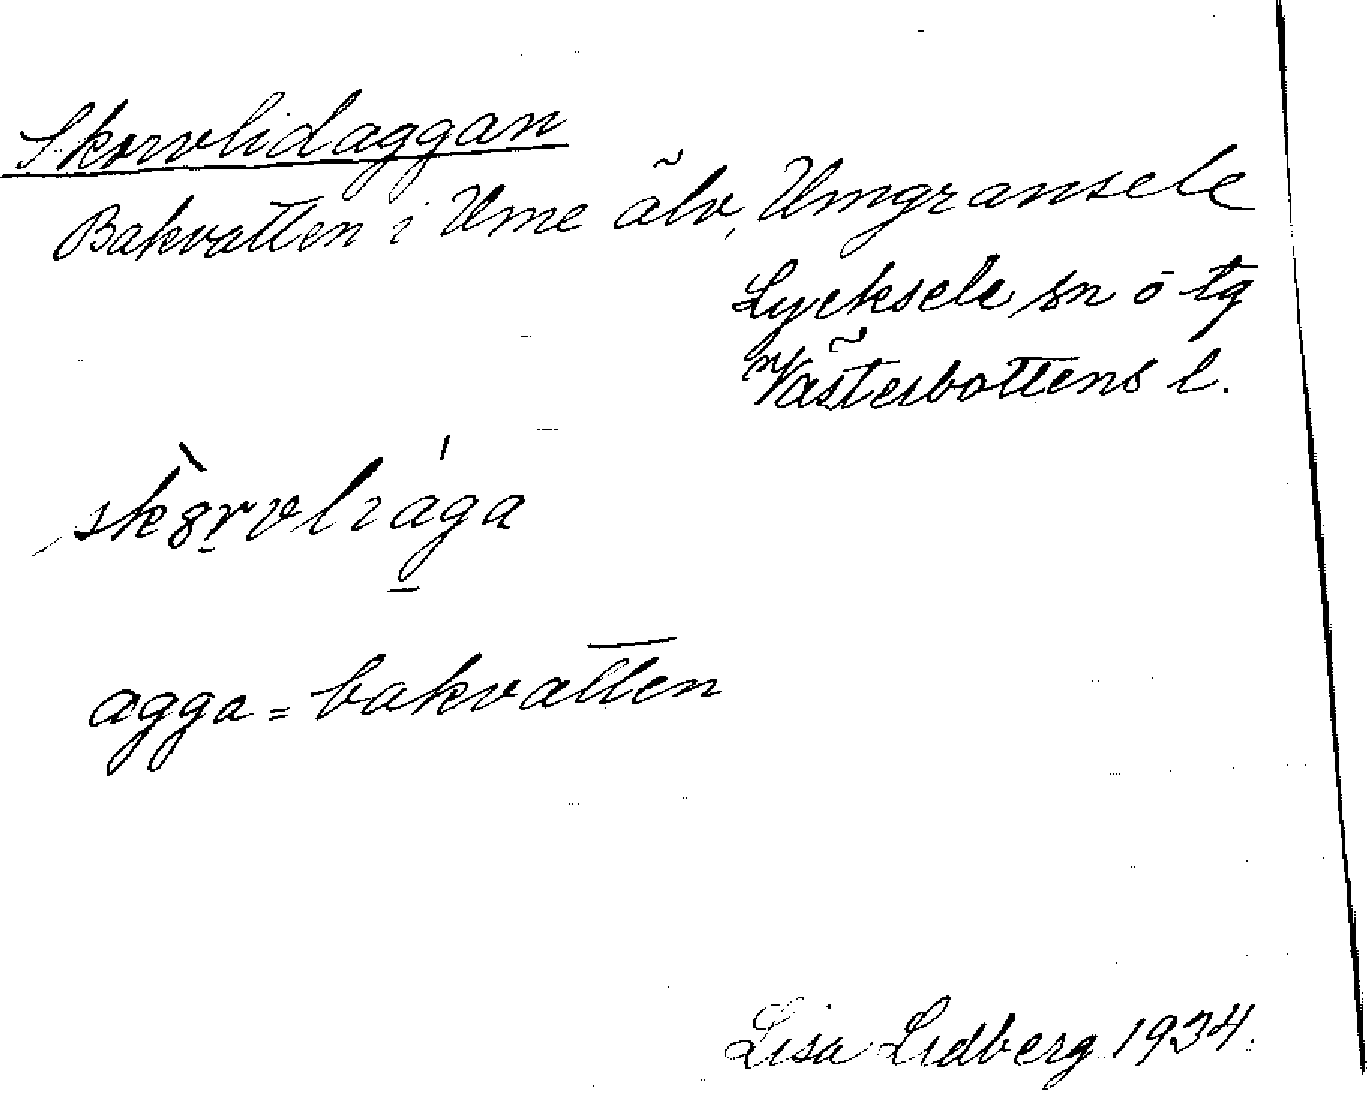 Skorvlidaggan
Bakvatten i Ume älv, Umgransele
Lycksele sn o tg
Västerbottens l.
sk8rvliaga
agga = bakvatten
Lisa Lidberg 1934.